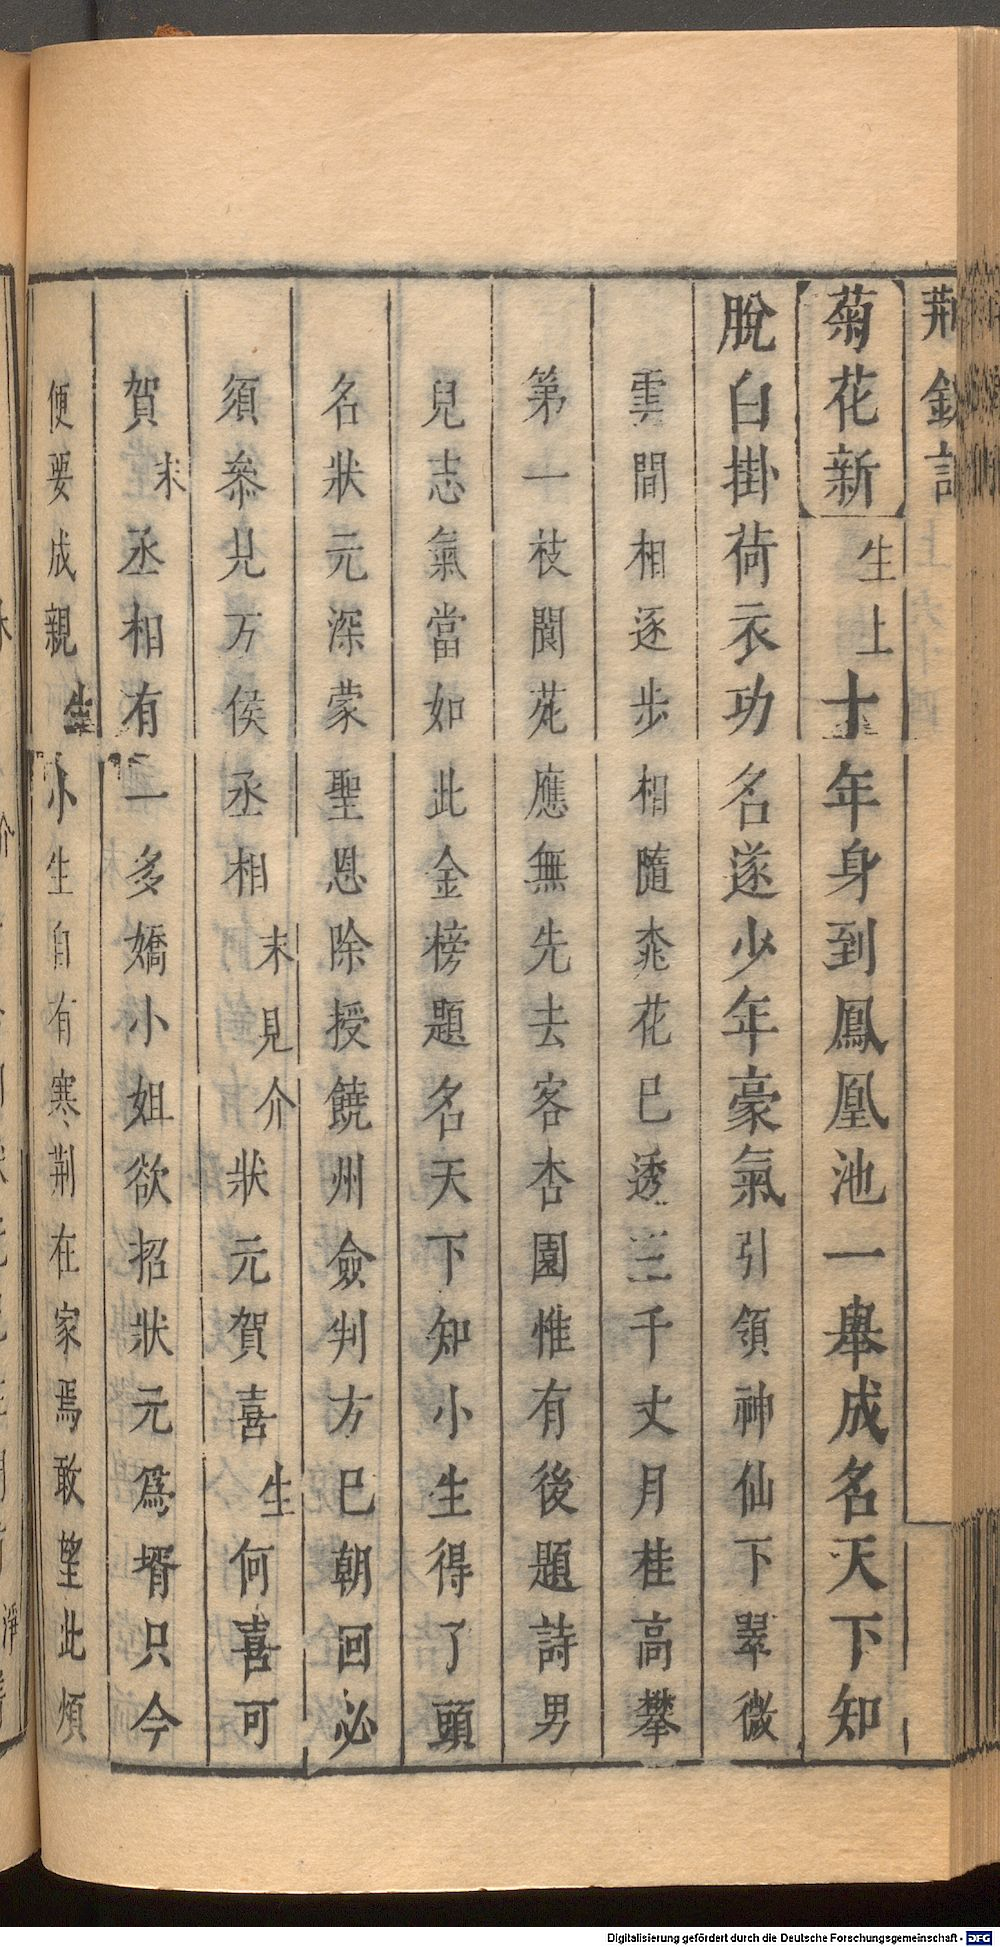 荆釵記
菊花新生上十年身到鳳凰池一舉成名天下知
脫白掛荷衣功名遂少年豪氣引領神仙下翠微
雲間相逐步相隨桃花已透三千丈月桂高攀
第一枝閬苑應無先去客杏園惟有後題詩男
兒志氣當如此金榜題名天下知小生得了頭
名狀元深蒙聖恩除授饒州僉判方巳朝回必
須參見万俟丞相末見介狀元賀喜生何喜可
賀末丞相有一多嬌小姐欲招狀元爲壻只今
便要成親生小生自有寒荆在家焉敢望此煩
Digitalisierung gefördert durch die Deutsche Forschungsgemeinschaft - DFG